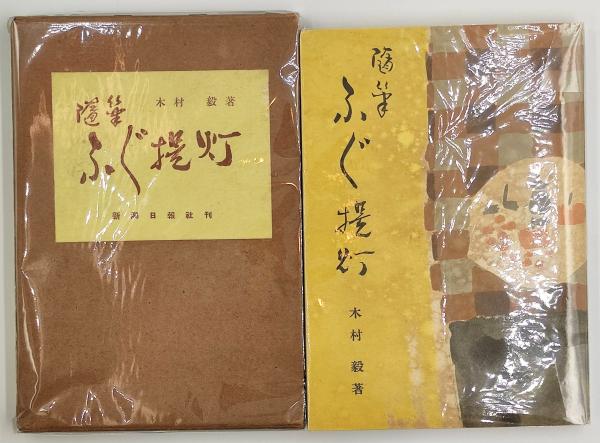 木村 毅 著
隨筆
ふぐ提灯
新潟日報社刊
隨筆
ふぐ提灯
木村 毅 著